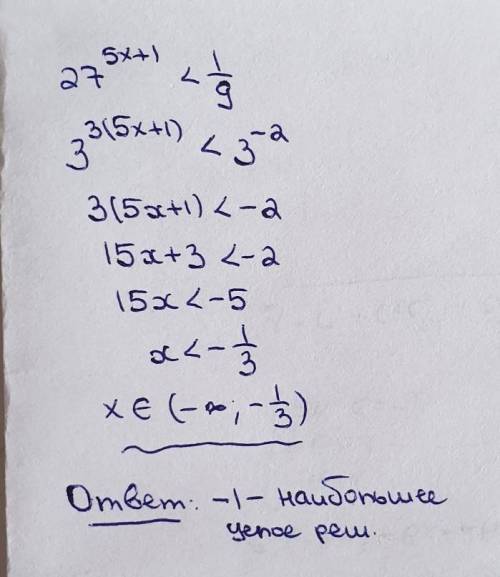 27^(5x+1) < 1/9
3^(3(5x+1)) < 3^(-2)
3(5x+1) < -2
15x+3 < -2
15x < -5
x < -1/3
x ∈ (-∞; -1/3)
Ответ: -1 - наибольшее
целое реш.